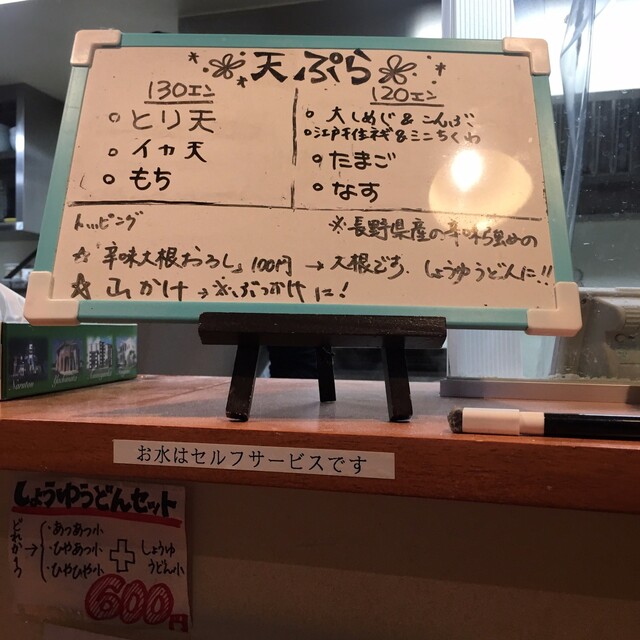 天ぷら
130エン
○とり天
○イカ天
○もち
120エン
○大しめじ&こんぶ
○ &ミニちくわ
○たまご
○なす
トッピング
※長野県産の辛味強めの
☆「辛味大根おろし」100円→大根です。しょうゆうどんに!!
☆山かけ→ ぶっかけに!
お水はセルフサービスです
しょうゆうどんセット
どれか1つ→
・あつあつ小
・ひやあつ小
・ひやひや小
+
しょうゆうどん小
600円